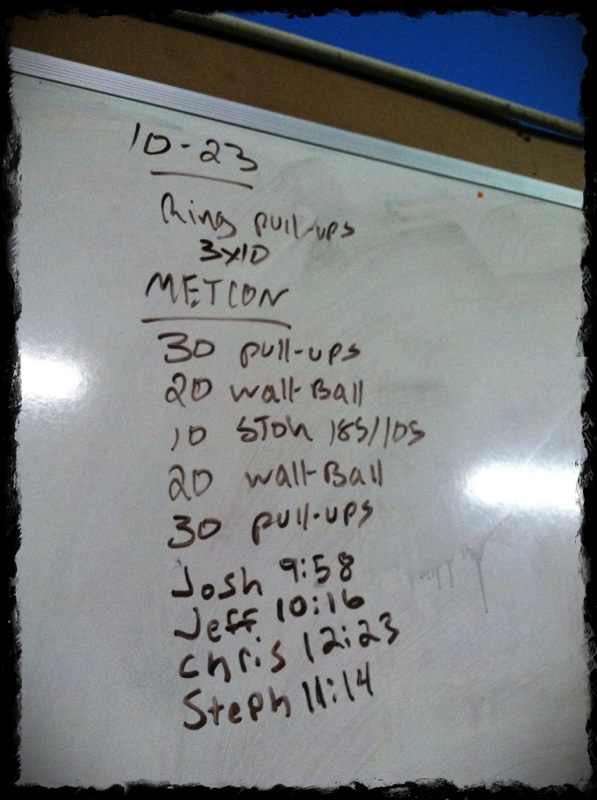 10-23
Ring pull-ups
3x10
METCON
30 pull-ups
20 wall-Ball
10 SToh 185/105
20 wall-Ball
30 pull-ups
Josh 9:58
Jeff 10:16
Chris 12:23
Steph 11:14